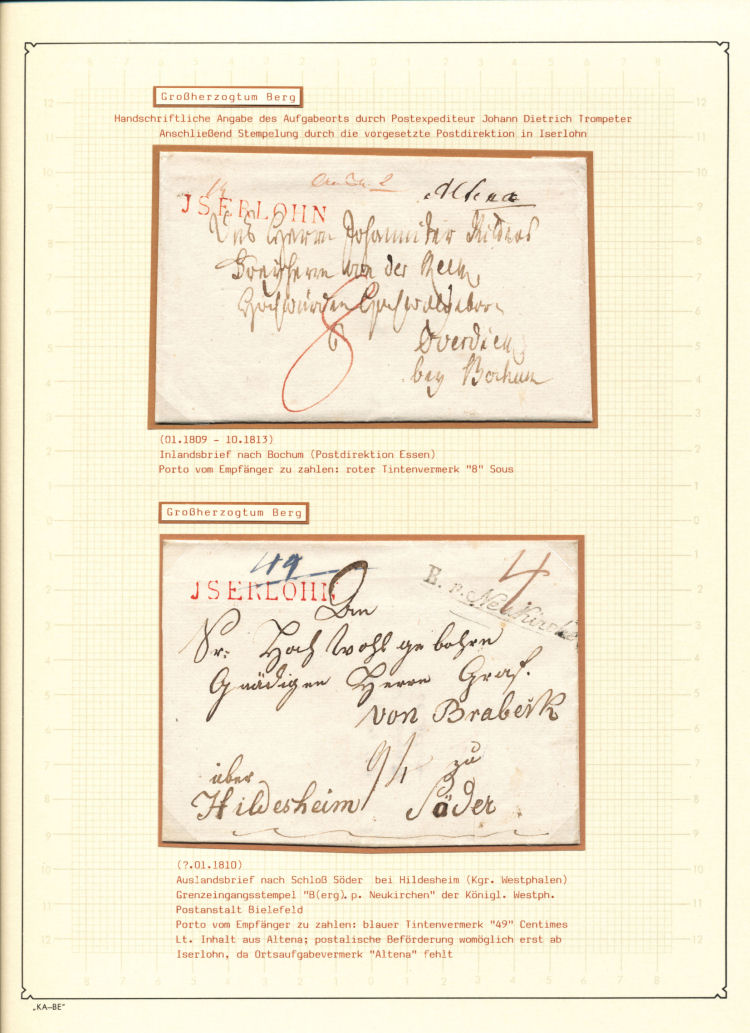 Großherzogtum Berg
Handschriftliche Angabe des Aufgabeorts durch Postexpediteur Johann Dietrich Trompeter
Anschließend Stempelung durch die vorgesetzte Postdirektion in Iserlohn
Altena
JSERLOHN
Herrn Johanniter
Freyherrn von der
Hochwürden Hochwolgeborn
8
Overdieck
bey Bochum
(01.1809 - 10.1813)
Inlandsbrief nach Bochum (Postdirektion Essen)
Porto vom Empfänger zu zahlen: roter Tintenvermerk "8" Sous
Großherzogtum Berg
49
4
JSERLOHN
B. p. Neukirchen
An
Sr: Hoch Wohl gebohrn
Gnädigen Herrn Graf.
von Brabeck
zu
über
Hildesheim Söder
(?.01.1810)
Auslandsbrief nach Schloß Söder bei Hildesheim (Kgr. Westphalen)
Grenzeingangsstempel "B(erg). p. Neukirchen" der Königl. Westph.
Postanstalt Bielefeld
Porto vom Empfänger zu zahlen: blauer Tintenvermerk "49" Centimes
Lt. Inhalt aus Altena; postalische Beförderung womöglich erst ab
Iserlohn, da Ortsaufgabevermerk "Altena" fehlt
„KA–BE"